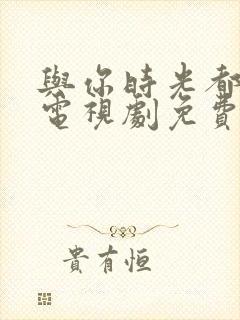 與你時光都
電視劇免費
貴有恒